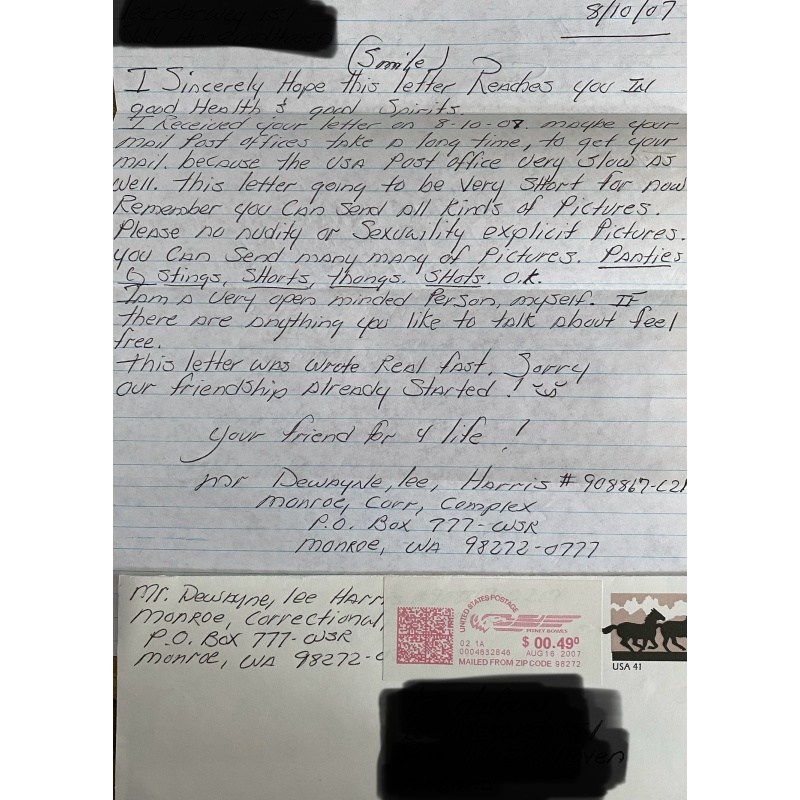 8/10/07
(Smile)
I Sincerely Hope this letter Reaches you IN
good Health & good Spirits.
I Received your letter on 8-10-07. maybe your
mail Post offices take a long time, to get your
mail. because the USA Post office very slow as
well. this letter going to be very SHort for now
Remember you Can Send All Kinds of Pictures.
Please no nudity or Sexuwility explicit Pictures.
you Can Send many many of Pictures. Panties
G stings, SHorts, thongs. SHots. O.K.
I am a very open minded Person, myself. IF
there are anything you like to talk about feel
free.
this letter was wrote Real fast. Sorry
our friendship Already Started!
your friend for 4 life!
mr Dewayne, lee, Harris # 908867-C21
monroe, Corr, Complex
P.O. Box 777-WSR
monroe, WA 98272-0777
Mr. Dewayne, lee Harr
monroe, Correctional,
P.O. Box 777-WSR
monroe, WA 98272-0
UNITED STATES POSTAGE
PITNEY BOWES
02 1A $ 00.49⁰
0004632846 AUG 16 2007
MAILED FROM ZIP CODE 98272
USA 41